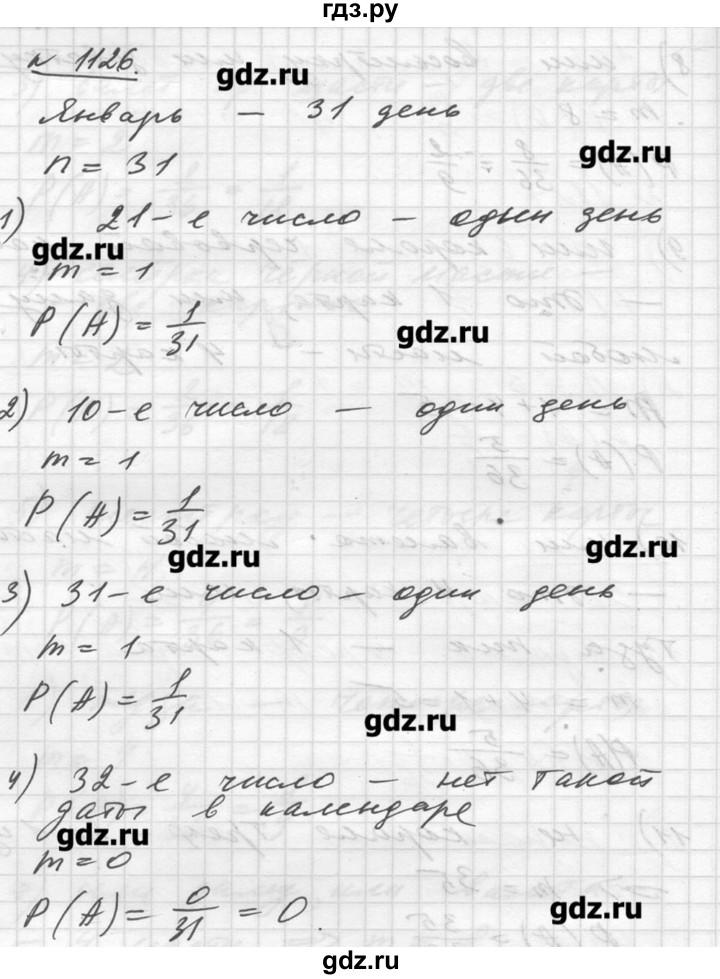 гдз.ру
№ 1126.
gdz.ru
Январь – 31 день
gdz.ru
n = 31
1) 21-е число – один день
gdz.ru
m = 1
P(A) = 1/31
gdz.ru
2) 10-е число – один день
m = 1
P(A) = 1/31
gdz.ru
gdz.ru
3) 31-е число – один день
m = 1
P(A) = 1/31
gdz.ru
4) 32-е число – нет такой
даты в календаре
gdz.ru
m = 0
P(A) = 0/31 = 0.
gdz.ru
gdz.ru